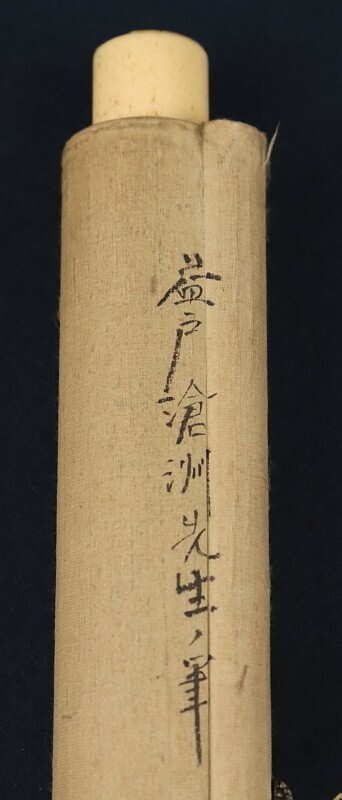 益戸滄洲先生ノ筆